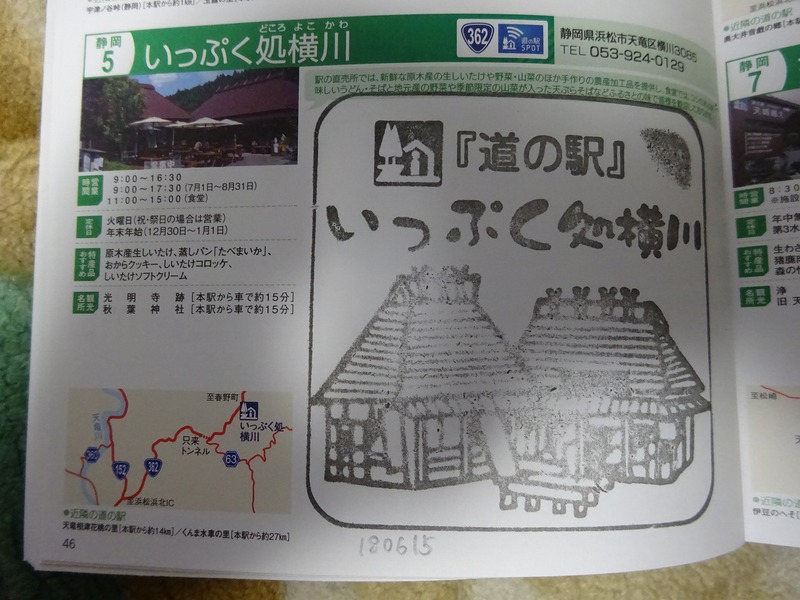 宇津ノ谷峠(静岡)[本駅から約1km]
静岡
5
どころ よこ かわ
いっぷく処横川
362
道の駅
SPOT
静岡県浜松市天竜区横川3085
TEL 053-924-0129
駅の直売所では、新鮮な原木産の生しいたけや野菜・山菜のほか手作りの農産加工品を提供し、食堂では
味しいうどん・そばと地元産の野菜や季節限定の山菜が入った天ぷらそばなどふるさとの味で
営業時間
9:00〜16:30
9:00〜17:30(7月1日〜8月31日)
11:00〜15:00(食堂)
定休日
火曜日(祝・祭日の場合は営業)
年末年始(12月30日〜1月1日)
特産品
おすすめ
原木産生しいたけ、蒸しパン「たべまいか」、
おからクッキー、しいたけコロッケ、
しいたけソフトクリーム
観光名所
光明寺跡[本駅から車で約15分]
秋葉神社[本駅から車で約15分]
『道の駅』
いっぷく処横川
至春野町
天竜川
いっぷく処
横川
只来
トンネル
360
152
362
63
至浜松浜北IC
●近隣の道の駅
天竜相津花桃の里[本駅から約14km]/くんま水車の里[本駅から約27km]
46
180615
●近隣の道の駅
奥大井音戯の郷
静岡
7
8:30
※施設
年中無
第3水
生わさ
猪鹿
森の
浄
旧天
至松崎
●近隣の道の駅
伊豆のへそ